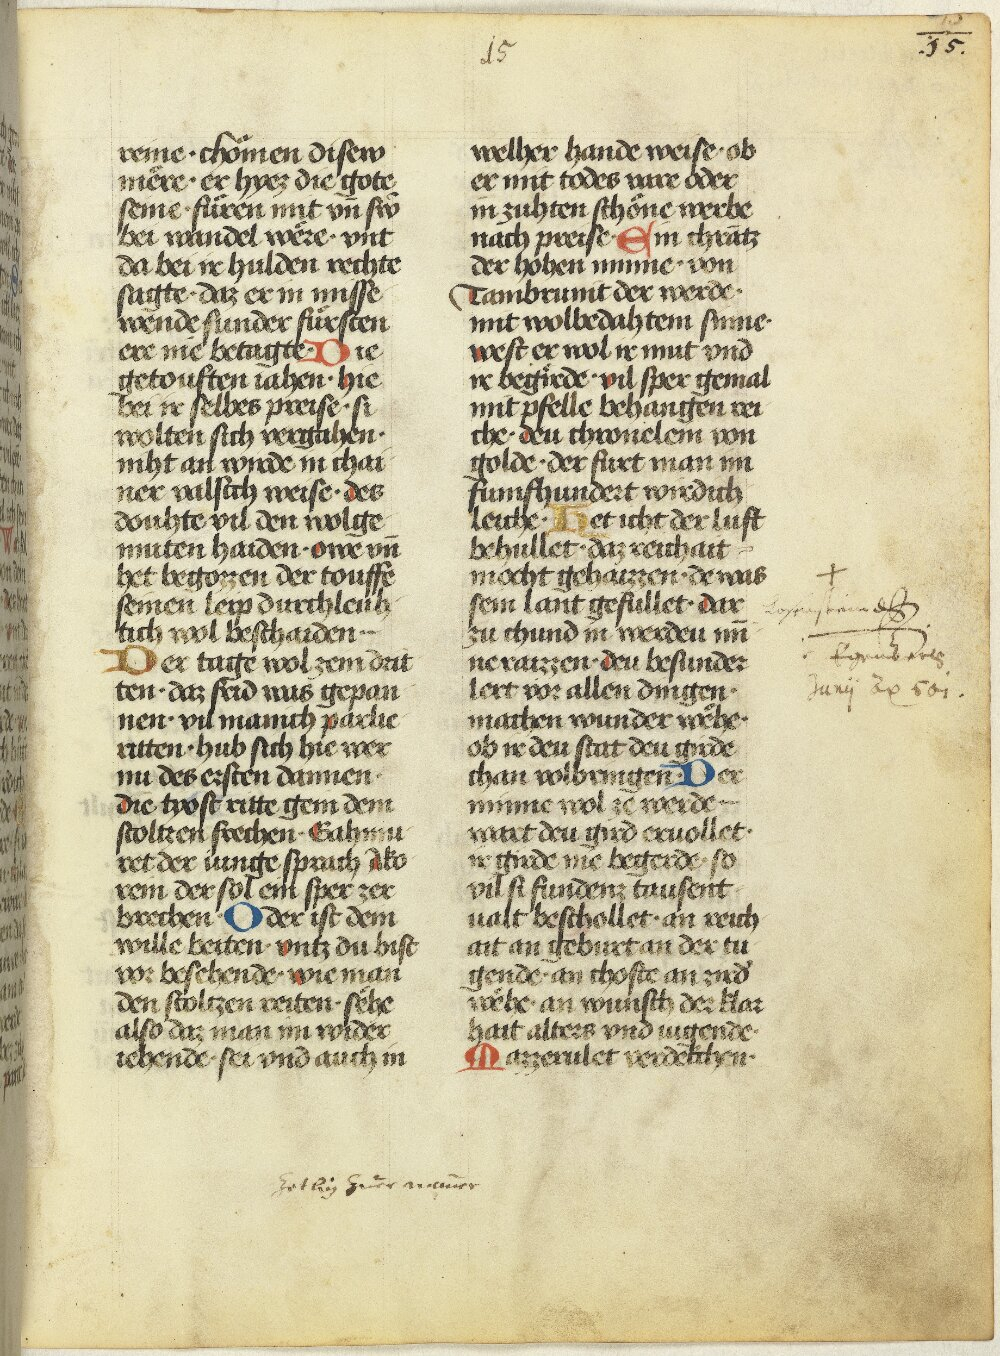 15
.15.
reine · chömen disew
märe · er hyez die gote
seine · füren mit vn̄ sw
bei wandel wëre · vnt
da bei ir hulden rechte
sagte · daz er in misse
wende sunder fürsten
ere nie betagte · Die
getouften iahen · hie
bei ir selbes preise · si
wolten sich vergahen ·
niht an wirde in chai
ner valsch weise · des
douhte vil den wolge
muten haiden · owe vn̄
het begozzen der touffe
seinen leip durchleuh
tich wol beschaiden
Der tage wol zem drit
ten · daz feld was gepan
nen · vil manich parlie
ritten · hub sich hie wer
nu des ersten dannen ·
die tyost ritte gein dem
stoltzen frechen · Gahmu
ret der iunge sprach Ako
rein der sol ein sper zer
brechen · Oder ist dem
wille beiten · vntz du bist
vor besehende · wie man
den stoltzen reiten · sëhe
also daz man im wider
iehende · sei vnd auch in
welher hande weise · ob
er mit todes vare oder
in zuhten schöne werbe
nach preise · Ein chrātz
der hohen minne · von
Tambrunit der werde ·
mit wolbedahtem sinne ·
west er wol ir mut vnd
ir begirde · vil sper gemal
mit pfelle behangen rei
che · deu chronelein von
golde · der furt man im
fumfhundert wirdich
leiche · Het icht der luft
behullet · daz reichait
mocht gehaizzen · de was
sein lant gefullet · dar
zu chund in werden nin
ne raizzen · deu besunder
lert vor allen dingen ·
machen wunder wëhe ·
ob ir deu stat deu girde
chan volbringen · Der
minne wol ze werde
wart deu gird ervollet ·
ir girde nie begerde · so
vil si fundenz tausent
ualt beschollet · an reich
ait an geburt an der tu
gende · an choste an zird
wëhe · an wunsch der klar
hait alters vnd iugende ·
Mazzerulet verdekchen ·